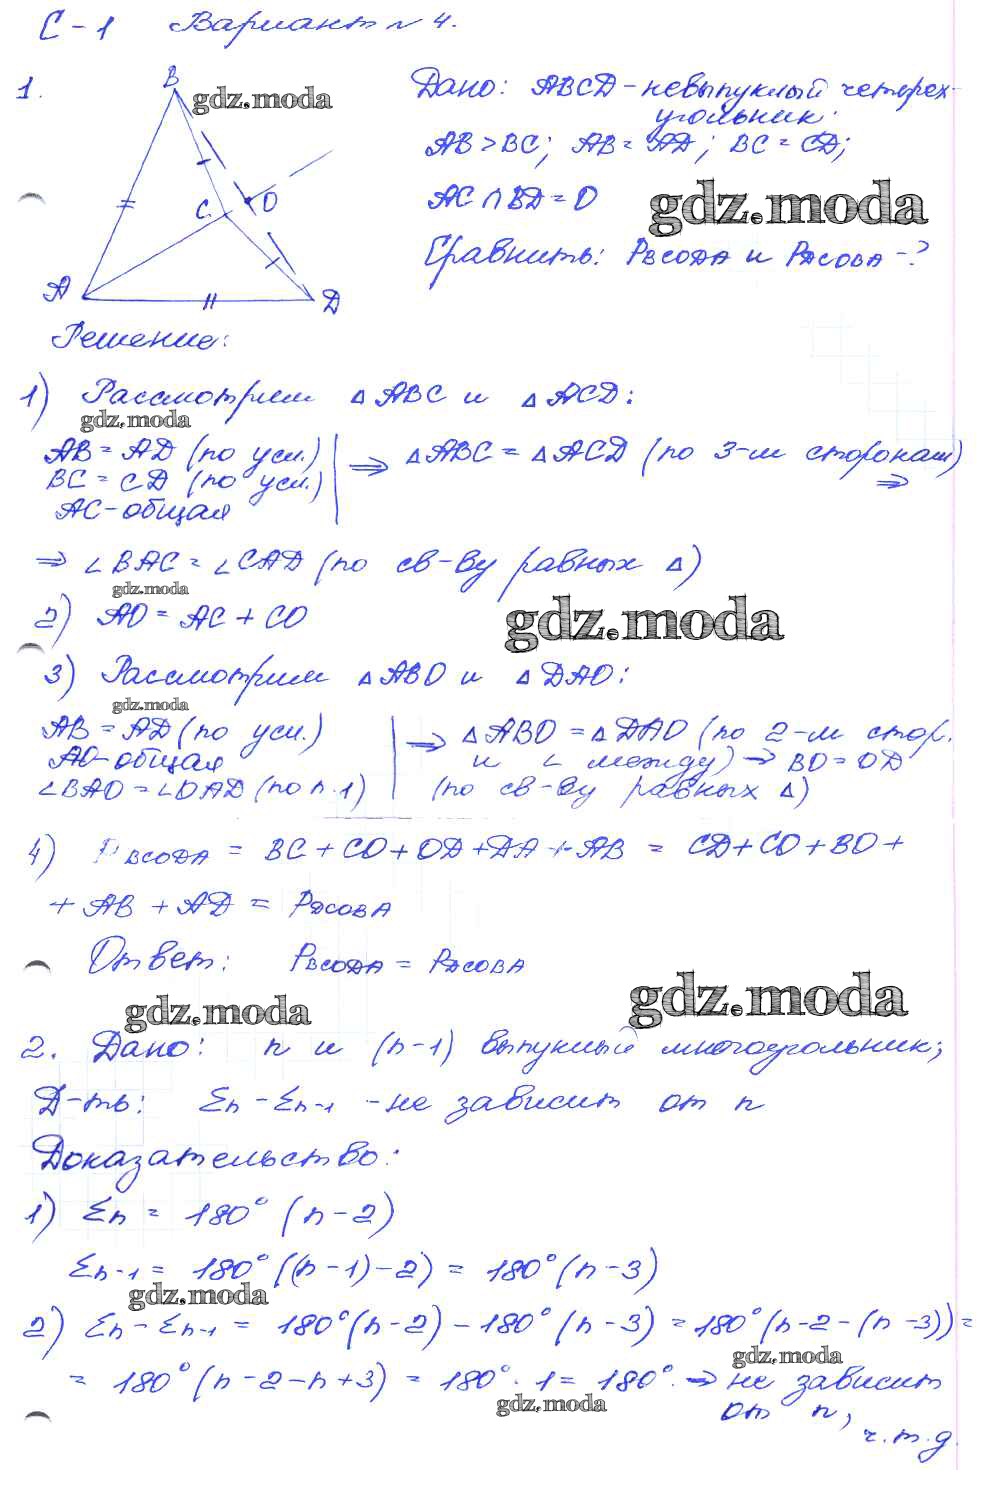 С-1 Вариант № 4.
1.
B
gdz.moda
Дано: ABCD - невыпуклый четырех-
угольник.
AB > BC; AB = AD; BC = CD;
C O
AC ∩ BD = O
gdz.moda
Сравнить: PBCODA и PDCOBA - ?
A D
Решение:
1) Рассмотрим △ABC и △ACD:
gdz.moda
AB = AD (по усл.) ⇒ △ABC = △ACD (по 3-м сторонам) ⇒
BC = CD (по усл.)
AC - общая
⇒ ∠BAC = ∠CAD (по св-ву равных △)
gdz.moda
2) AO = AC + CO
gdz.moda
3) Рассмотрим △ABO и △DAO:
gdz.moda
AB = AD (по усл.) ⇒ △ABO = △DAO (по 2-м стор.
AO - общая и ∠ между) ⇒ BO = OD
∠BAO = ∠OAD (по п.1) (по св-ву равных △)
4) PBCODA = BC + CO + OD + DA + AB = CD + CO + BO +
+ AB + AD = PDCOBA
Ответ: PBCODA = PDCOBA
gdz.moda
gdz.moda
2. Дано: n и (n-1) выпуклый многоугольник;
Д-ть: Σn - Σn-1 - не зависит от n
Доказательство:
1) Σn = 180° (n - 2)
Σn-1 = 180° ((n - 1) - 2) = 180° (n - 3)
gdz.moda
2) Σn - Σn-1 = 180° (n - 2) - 180° (n - 3) = 180° (n - 2 - (n - 3)) =
gdz.moda
= 180° (n - 2 - n + 3) = 180° · 1 = 180°. ⇒ не зависит
gdz.moda
от n,
ч.т.д.